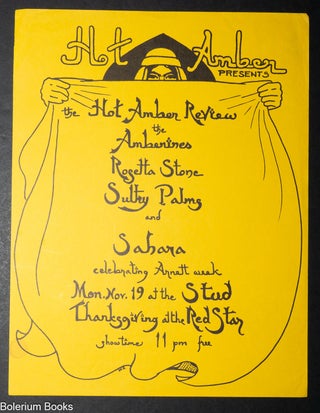 Hot Amber
PRESENTS
the Hot Amber Review
the
Amberines
Rosetta Stone
Sultry Palms
and
Sahara
celebrating Arnett week
Mon. Nov. 19 at the Stud
Thanksgiving at the Red Star
showtime 11 pm free
Bolerium Books